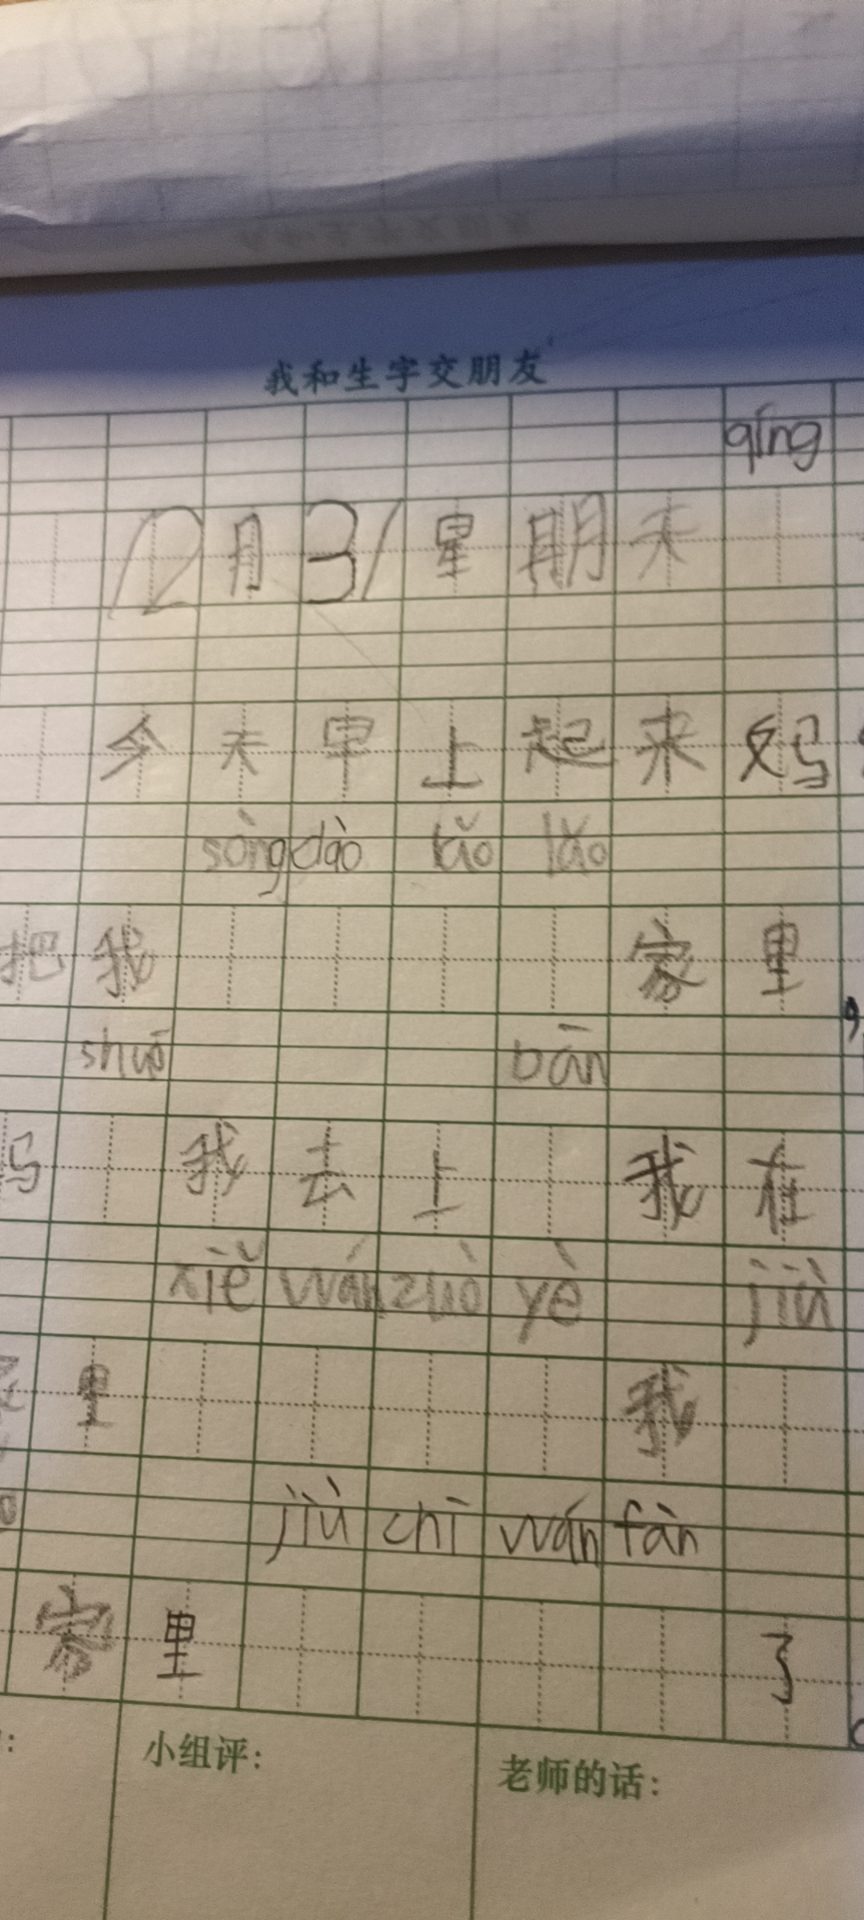 我和生字交朋友
qíng
12月31星期天
今天早上起来妈
sòng dào lǎo lǎo
把我 家里
shuō bān
妈 我去上 我在
xiě wán zuò yè jiù
里 我
jiù chī wán fàn
家里 了
小组评：
老师的话：